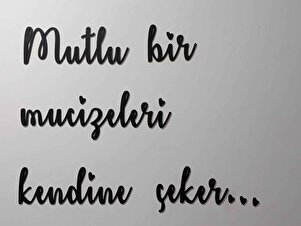 Mutlu bir
mucizeleri
kendine çeker...